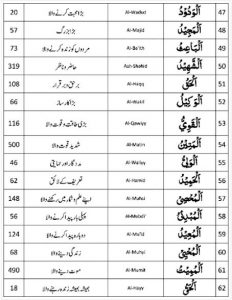 47 اَلْوَدُوْدُ Al-Wadud بڑا محبت کرنے والا 20
48 اَلْمَجِيْدُ Al-Majid بڑا بزرگ 57
49 اَلْبَاعِثُ Al-Ba'ith مردوں کو زندہ کرنے والا 73
50 اَلشَّهِيْدُ Ash-Shahid حاضر و ناظر 319
51 اَلْحَقُّ Al-Haqq برحق و برقرار 108
52 اَلْوَكِيْلُ Al-Wakil بڑا کارساز 66
53 اَلْقَوِيُّ Al-Qawiyy بڑی طاقت و قوت والا 116
54 اَلْمَتِيْنُ Al-Matin شدید قوت والا 500
55 اَلْوَلِيُّ Al-Waliyy مددگار اور حمایتی 46
56 اَلْحَمِيْدُ Al-Hamid تعریف کے لائق 62
57 اَلْمُحْصِيُ Al-Muhsi 148
58 اَلْمُبْدِئُ Al-Mubdi' پہلی بار پیدا کرنے والا 56
59 اَلْمُعِيْدُ Al-Mu'id دوبارہ پیدا کرنے والا 124
60 اَلْمُحْيِيُ Al-Muhyi زندگی دینے والا 68
61 اَلْمُمِيْتُ Al-Mumit موت دینے والا 490
62 اَلْحَيُّ Al-Hayy ہمیشہ ہمیشہ زندہ رہنے والا 18